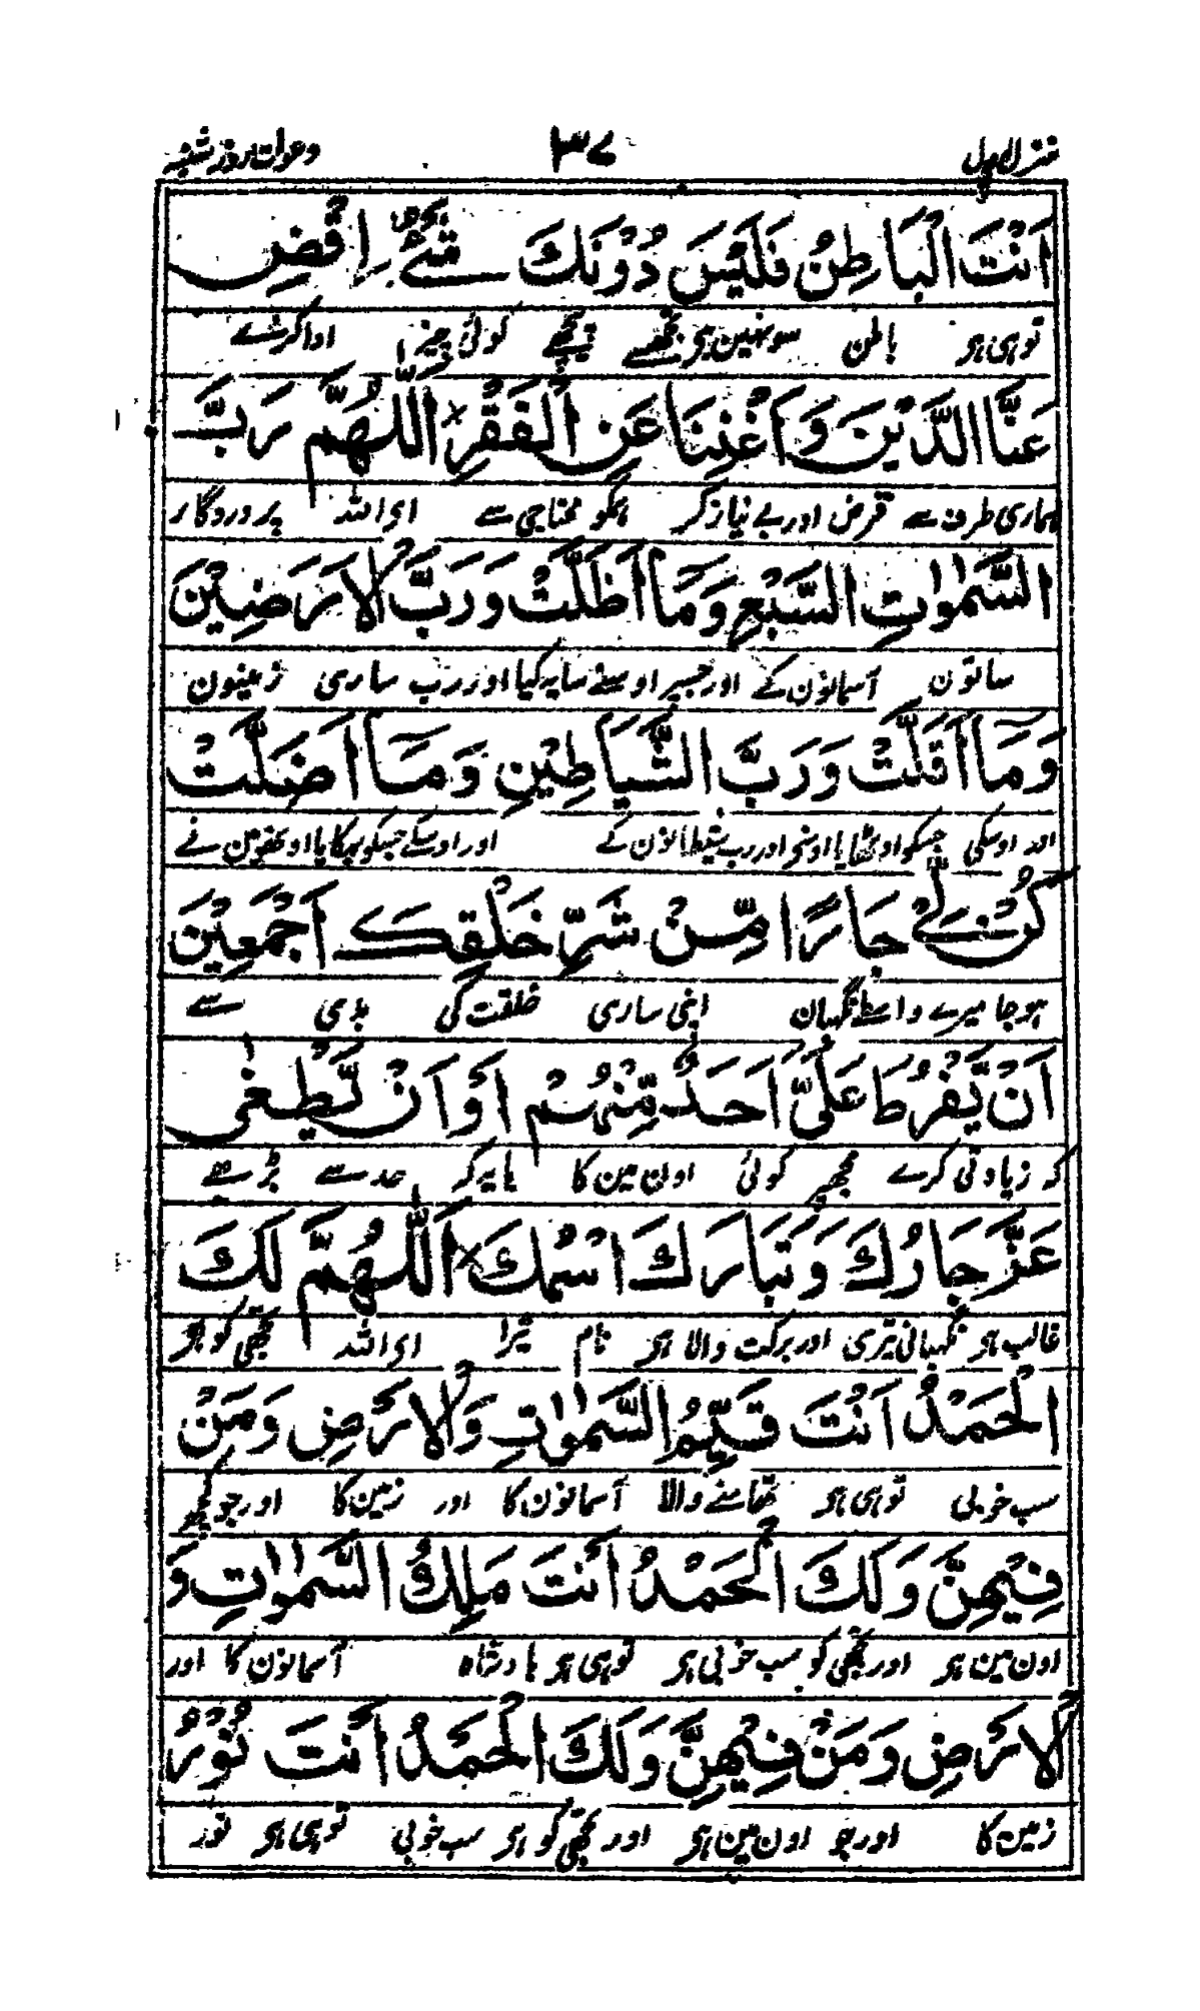 منزل اول ۳۷ دعوات روز شنبه
اَنْتَ الْبَاطِنُ فَلَيْسَ دُوْنَكَ شَيْءٌ اِقْضِ
توہی ہر باطن سو نہین ہر تجھسے نیچے کوئی چیز ادا کر دے
عَنَّا الدَّيْنَ وَاَغْنِنَا عَنِ الْفَقْرِ اَللّٰهُمَّ رَبَّ
ہماری طرف سے قرض اور بے نیاز کر ہمکو محتاجی سے ای اللہ پروردگار
السَّمٰوٰتِ السَّبْعِ وَمَآ اَظَلَّتْ وَرَبَّ الْاَرَضِيْنَ
ساتون آسمانون کے اور جسپر اوسنے سایہ کیا اور رب ساری زمینون
وَمَآ اَقَلَّتْ وَرَبَّ الشَّيَاطِيْنِ وَمَآ اَضَلَّتْ
اور اوسکی جسکو اوٹھایا اونہر اور رب شیطانون کے اور اوسکے جسکو بہکایا اونھون نے
كُنْ لِّيْ جَارًا مِّنْ شَرِّ خَلْقِكَ اَجْمَعِيْنَ
ہوجا میرے واسطے نگہبان اپنی ساری خلقت کی بدی سے
اَنْ يَّفْرُطَ عَلَيَّ اَحَدٌ مِّنْهُمْ اَوْ اَنْ يَّطْغٰى
کہ زیادتی کرے مجھپر کوئی اون مین کا یا یہ کہ حد سے بڑھے
عَزَّ جَارُكَ وَتَبَارَكَ اسْمُكَ اَللّٰهُمَّ لَكَ
غالب ہر نگہبانی تیری اور برکت والا ہر نام تیرا ای اللہ تجھی کو ہر
الْحَمْدُ اَنْتَ قَيِّمُ السَّمٰوٰتِ وَالْاَرْضِ وَمَنْ
سب خوبی توہی ہر تھامنے والا آسمانون کا اور زمین کا اور جو کچھ
فِيْهِنَّ وَلَكَ الْحَمْدُ اَنْتَ مَلِكُ السَّمٰوٰتِ وَ
اون مین ہر اور تجھی کو سب خوبی ہر توہی ہر بادشاہ آسمانون کا اور
الْاَرْضِ وَمَنْ فِيْهِنَّ وَلَكَ الْحَمْدُ اَنْتَ نُوْرُ
زمین کا اور جو اون مین ہر اور تجھی کو ہر سب خوبی توہی ہر نور